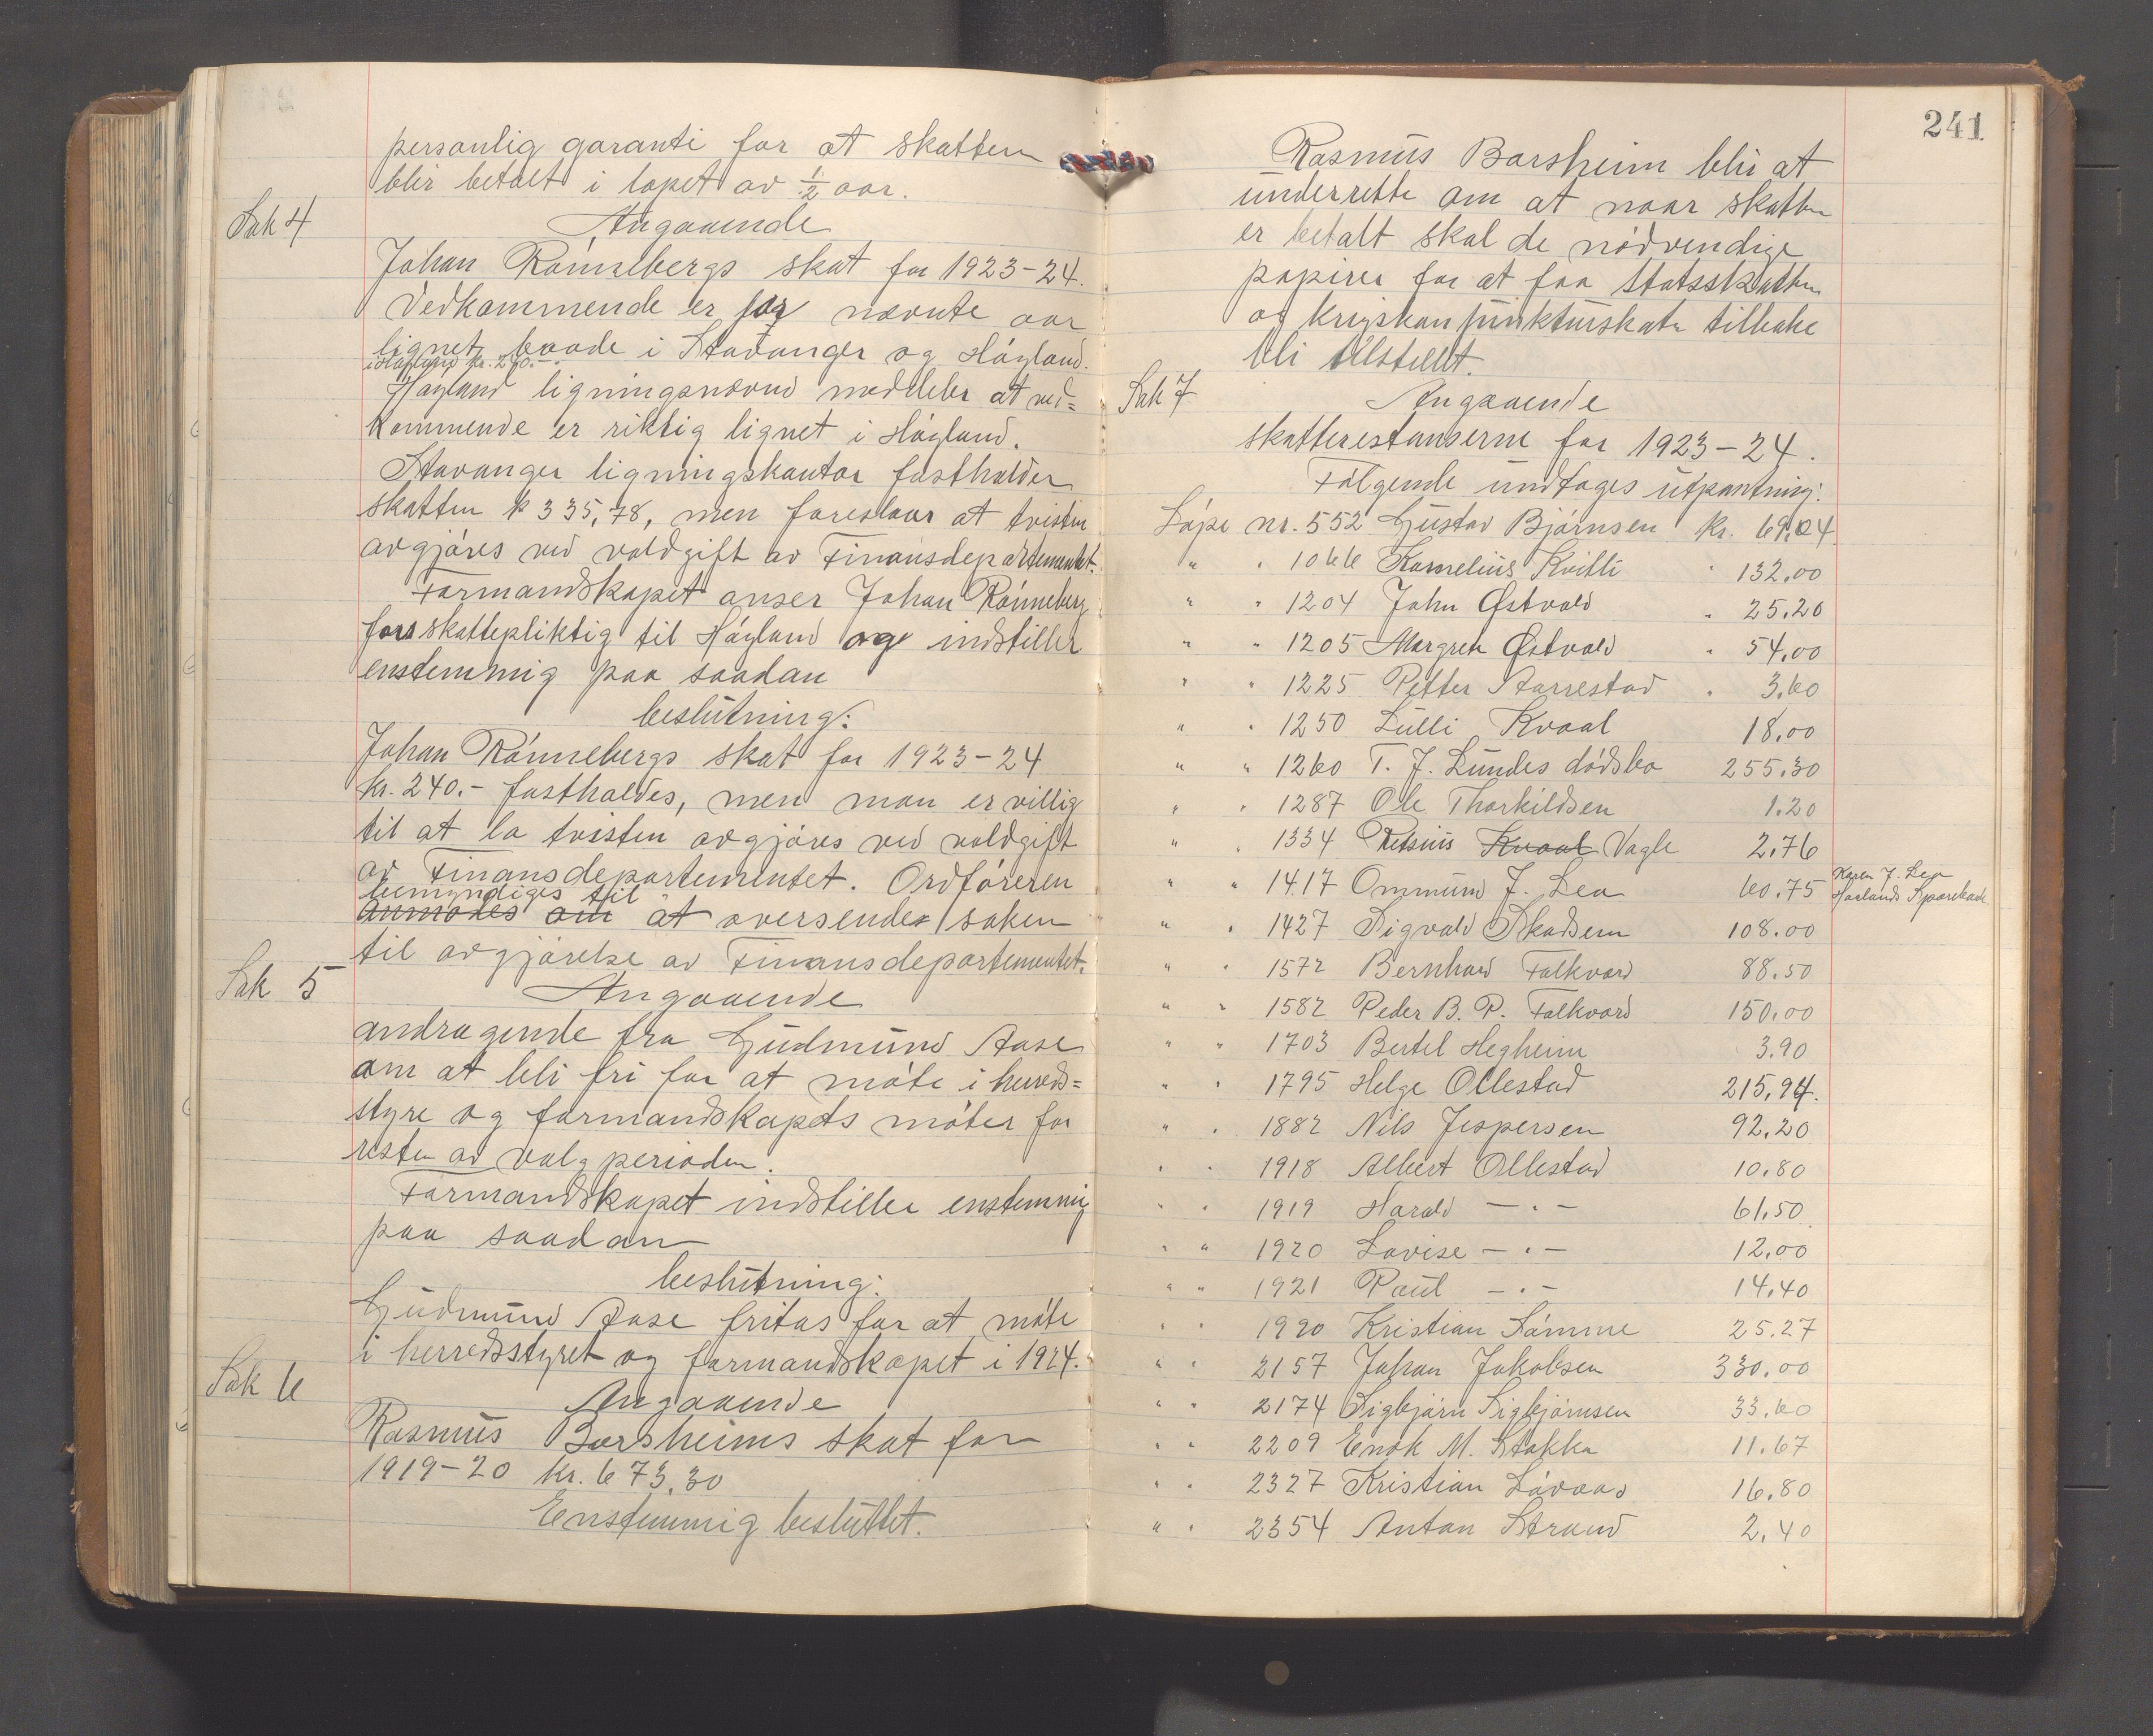 personlig garanti for at skatten
blir betalt i løpet av 1/2 aar.
Sak 4
Angaaende
Johan Rønnebergs skat for 1923-24.
Vedkommende er for nævnte aar
lignet baade i Stavanger og Høyland.
i Høyland kr. 240.-
Høyland ligningsnævnd meddeler at ved=
kommende er riktig lignet i Høyland.
Stavanger ligningskontor fastholder
skatten k 335,78, men foreslaar at tvisten
avgjøres ved voldgift av Finansdepartementet.
Formandskapet anser Johan Rønneberg
for skattepliktig til Høyland og indstiller
enstemmig paa saadan
beslutning:
Johan Rønnebergs skat for 1923-24
kr. 240.- fastholdes, men man er villig
til at la tvisten avgjøres ved voldgift
av Finansdepartementet. Ordføreren
bemyndiges til
anmodes om at oversende saken
til avgjørelse av Finansdepartementet.
Sak 5
Angaaende
andragende fra Gudmund Aase
om at bli fri for at møte i herreds=
styre og formandskapets møter for
resten av valgperioden.
Formandskapet indstiller enstemmig
paa saadan
beslutning:
Gudmund Aase fritas for at møte
i herredsstyret og formandskapet i 1924.
Sak 6
Angaaende
Rasmus Borsheims skat for
1919-20 kr. 673,30
Enstemmig besluttet.
241
Rasmus Borsheim blir at
underrette om at naar skatten
er betalt skal de nødvendige
papirer for at faa statsskatten
og krigskonjunkturskatt tilbake
bli tilstillet.
Sak 7
Angaaende
skatterestanserne for 1923-24.
Følgende undtages utpantning:
Løpe nr. 552 Gustav Bjørnsen kr. 69,24
" " 1066 Kornelius Kvitli " 132,00
" " 1204 John Østvold " 25,20
" " 1205 Margrete Østvold " 54,00
" " 1225 Petter Aarrestad " 3,60
" " 1250 Lulli Kvaal 18,00
" " 1260 T. J. Lundes dødsbo 255,30
" " 1287 Ole Thorkildsen 1.20
" " 1334 Retsius Kvaal Vagle 2,76
" " 1417 Ommund J. Lea 60.75 Karen J. Lea
Høylands Sparekasse
" " 1427 Sigvald Skadsem 108.00
" " 1572 Bernhard Falkvard 88.50
" " 1582 Peder B. P. Falkvard 150,00
" " 1703 Bertel Hegheim 3.90
" " 1795 Helge Ollestad 215,94.
" " 1882 Nils Jespersen 92.20
" " 1918 Albert Ollestad 10.80
" " 1919 Harald - " - 61,50
" " 1920 Lovise - " - 12,00
" " 1921 Paul - " - 14,40
" " 1990 Kristian Sømme 25.27
" " 2157 Johan Jakobsen 330.00
" " 2174 Sigbjørn Sigbjørnsen 33.60
" " 2209 Enok M. Stokka 11.67
" " 2327 Kristian Løvaas 16.80
" " 2354 Anton Strand 2,40